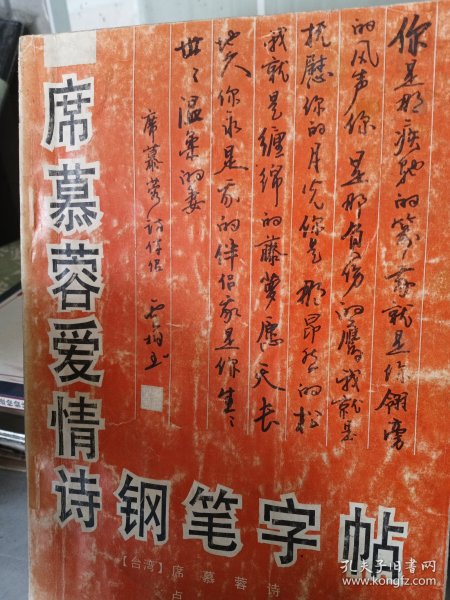 席慕蓉爱情诗
钢笔字帖
你是那疾驰的箭我就是你翎旁
的风声你是那负伤的鹰我就是
抚慰你的月光你是那昂然的松
我就是缠绵的藤萝愿天长
地久你永是我的伴侣我是你生〻
世〻温柔的妻
席慕蓉诗伴侣
【台湾】席慕蓉诗
孔夫子旧书网
www.kongfz.com